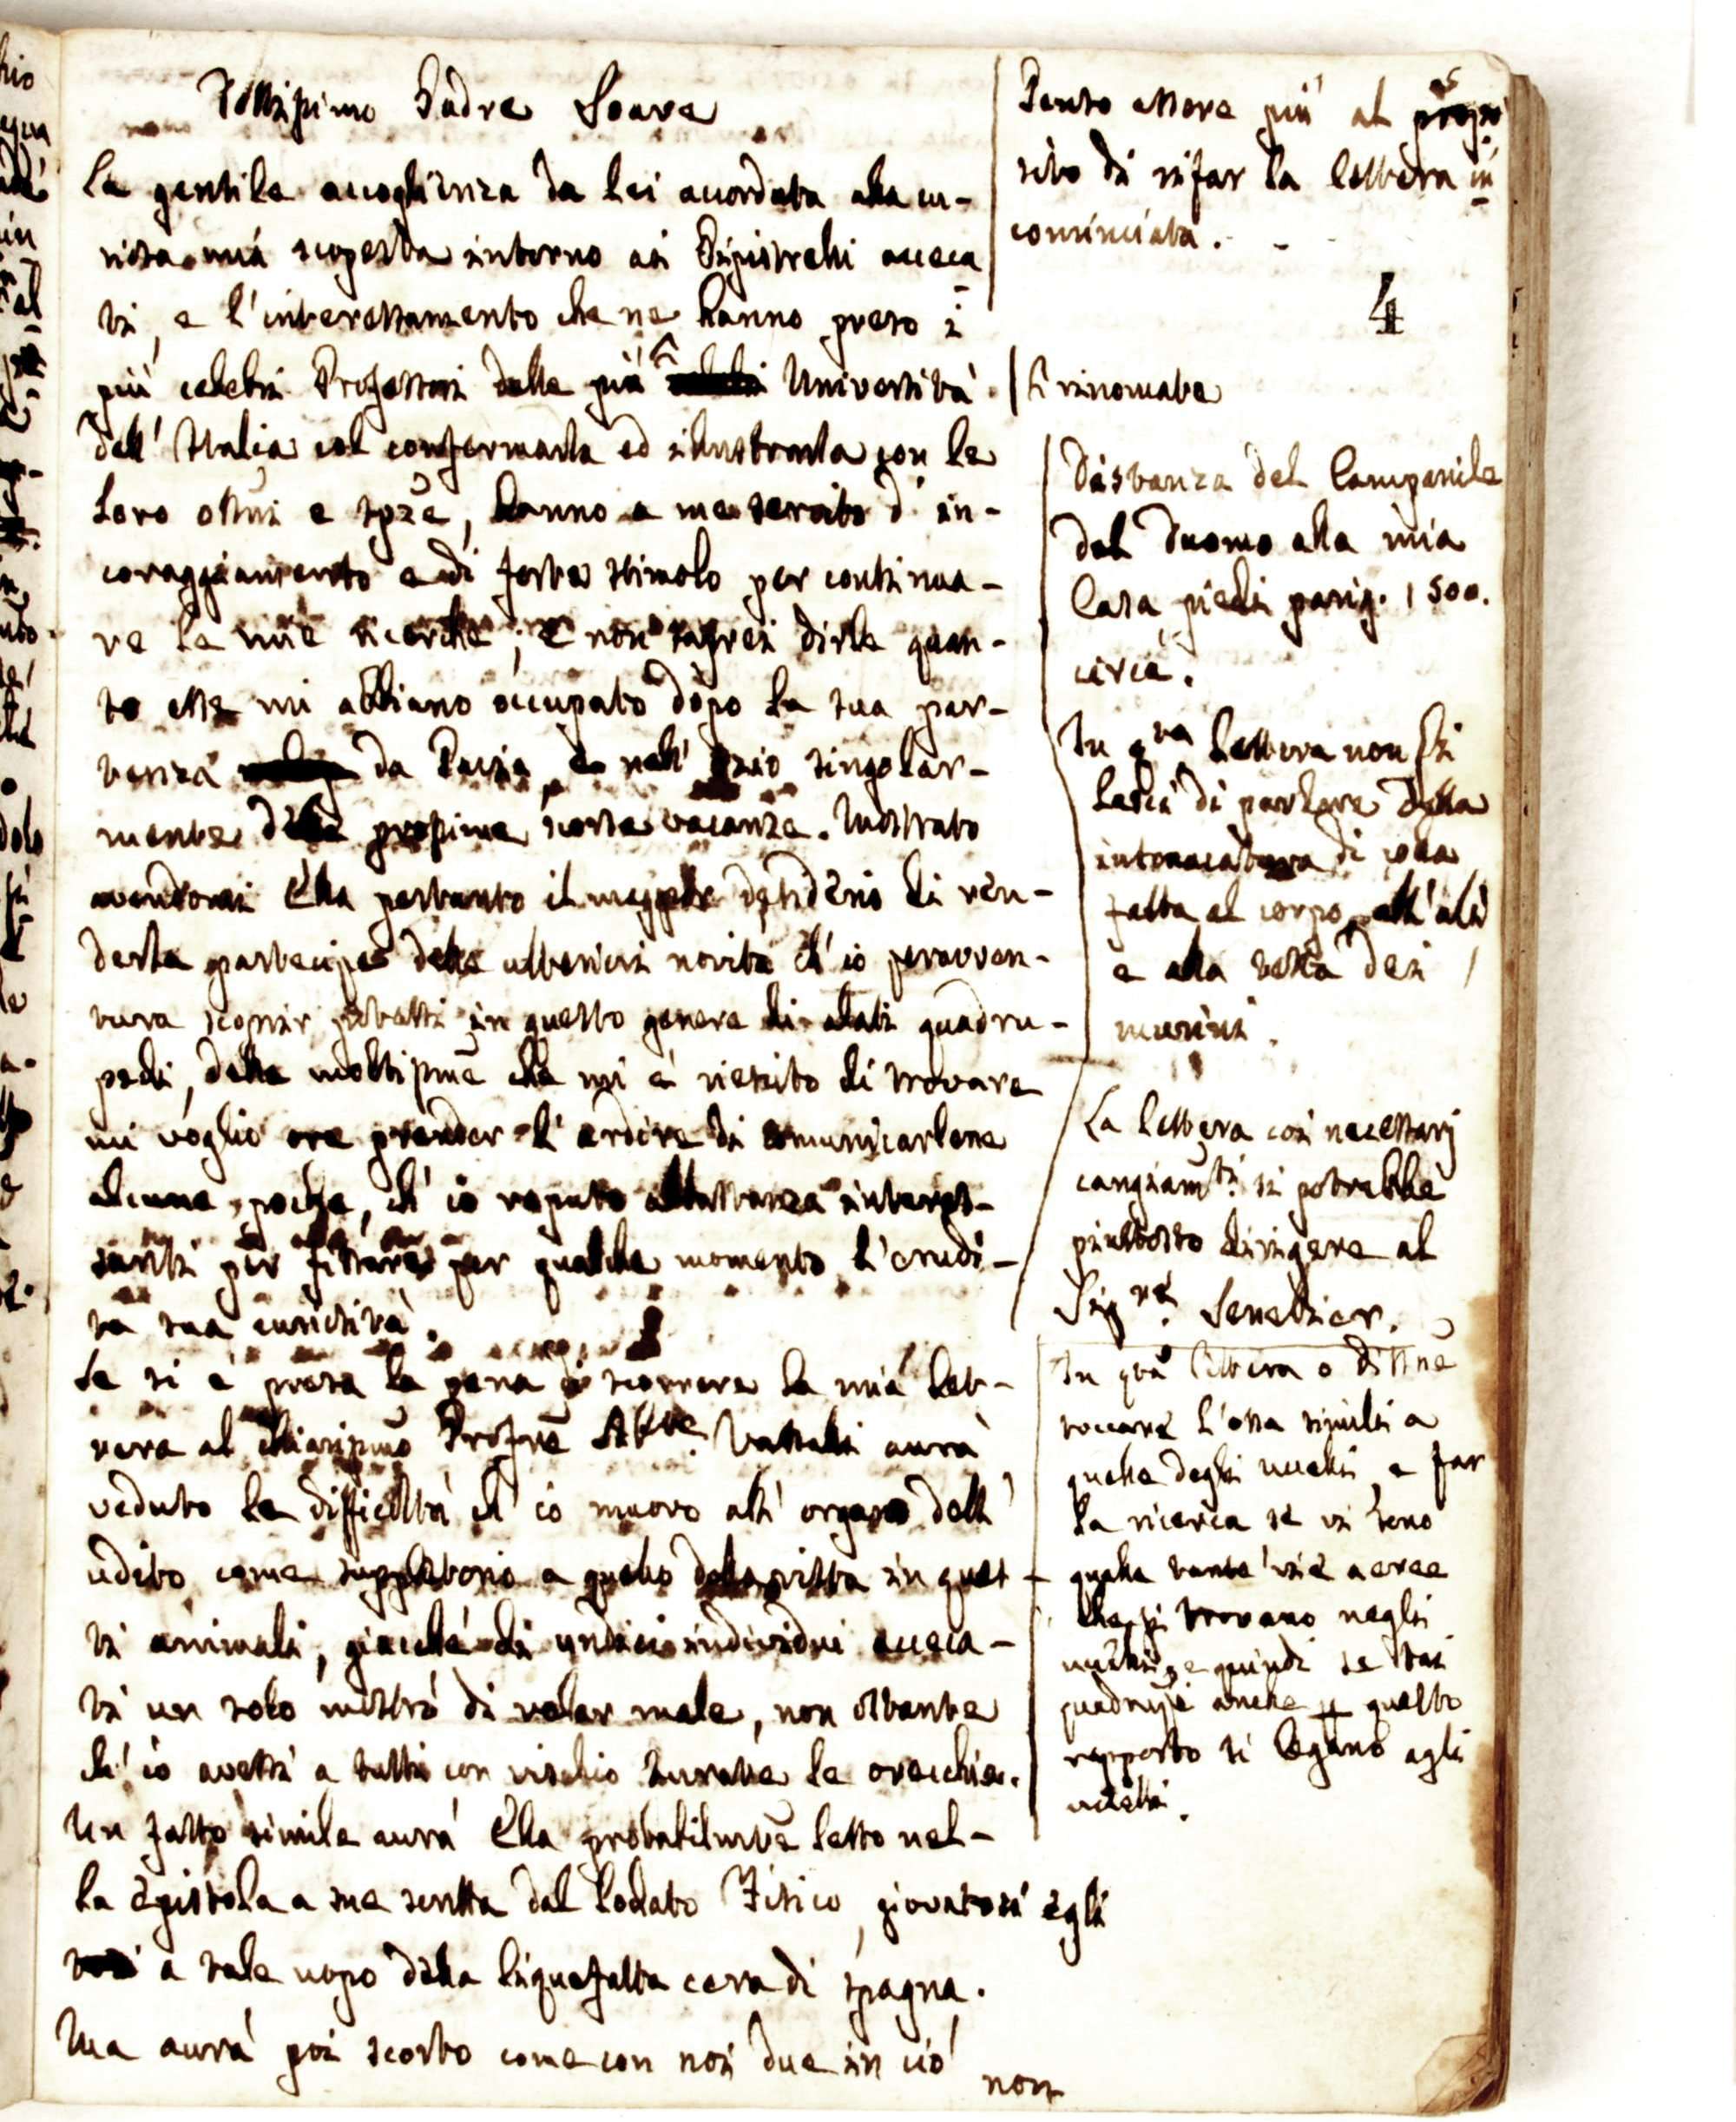 Padre Soave
La gentile accoglienza da Lei accordata alla cu-
riosa mia scoperta intorno ai Pipistrelli acceca
ti, e l'interessamento che ne hanno preso i
più celebri Professori delle più Università
dell'Italia col confermarla ed illustrarla con le
loro e spze, hanno a me servito d'in-
coraggiamento e di forte stimolo per continua-
re le mie ricerche; e non saprei dirle quan-
to esse mi abbiano occupato dopo la sua par-
tenza da Pavia, e nell'ozio singolar-
mente delle scorse vacanze. Mostrato
avendomi Ella pertanto il desiderio di ren-
derla partecipe delle ulteriori novità ch'io peravven-
tura scoprir potessi in questo genere di alati quadru-
pedi, delle moltissime che mi è riescito di trovare
mi voglio ora prender l'ardire di comunicarlene
alcune poche, ch'io reputo abbastanza interes-
santi per fissare per qualche momento l'erudi-
ta sua curiosità.
Se si è presa la pena di scorrere la mia let-
tera al chiarissimo Profre Abte. Vassalli avrà
veduto le difficoltà ch'io muovo all'organo dell'
udito come suppletorio a quello della vista in ques-
ti animali, giacchè di undici individui acceca-
ti un solo mostrò di volar male, non ostante
ch'io avessi a tutti con vischio turate le orecchie.
Un fatto simile avrà Ella probabilmte letto nel-
la Epistola a me scritta dal lodato Fisico, giovatosi egli
a tale uopo della liquefatta cera di spagna.
Ma avrà poi scorto come con noi due in ciò
non
Penso essere più al propo
sito di rifar la lettera in
cominciata.
4
rinomate
Distanza del Campanile
del Duomo alla mia
Casa piedi parig. 1500.
circa.
In qta lettera non si
lasci di parlare della
intonacatura di colla
fatta al corpo, all'ali
e alla testa dei
La lettera coi necessarj
cangiamti. si potrebbe
piuttosto dirigere al
Sigre. Senebier.
In qta lettera o dissne
toccare l'ossa simili a
quelle degli uccelli, e far
la ricerca se vi sono
quelle tante vie aeree
che si trovano negli
uccelli, e quindi se tai
anche p questo
rapporto si legano agli
uccelli.